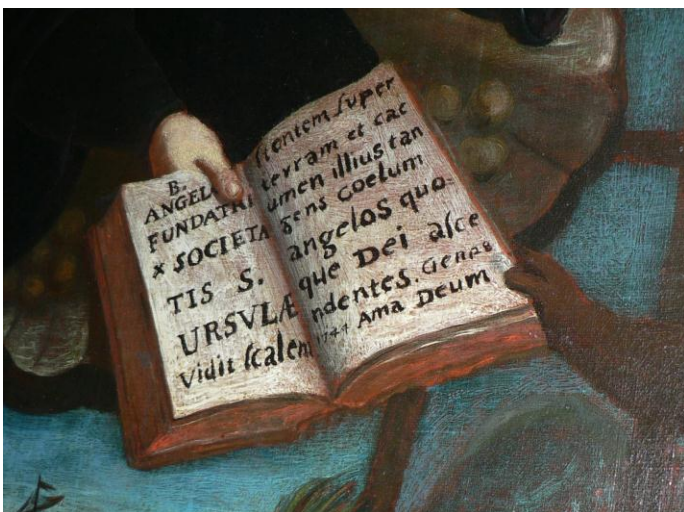 B.
ANGEL
FUNDATRI
x SOCIETA
TIS S.
URSVLÆ
Vidit ſcalem
ſtentem ſuper
terram et cac
umen illius tan
gens coelum
angelos quo
que Dei aſce
ndentes. Genes
1744 Ama Deum